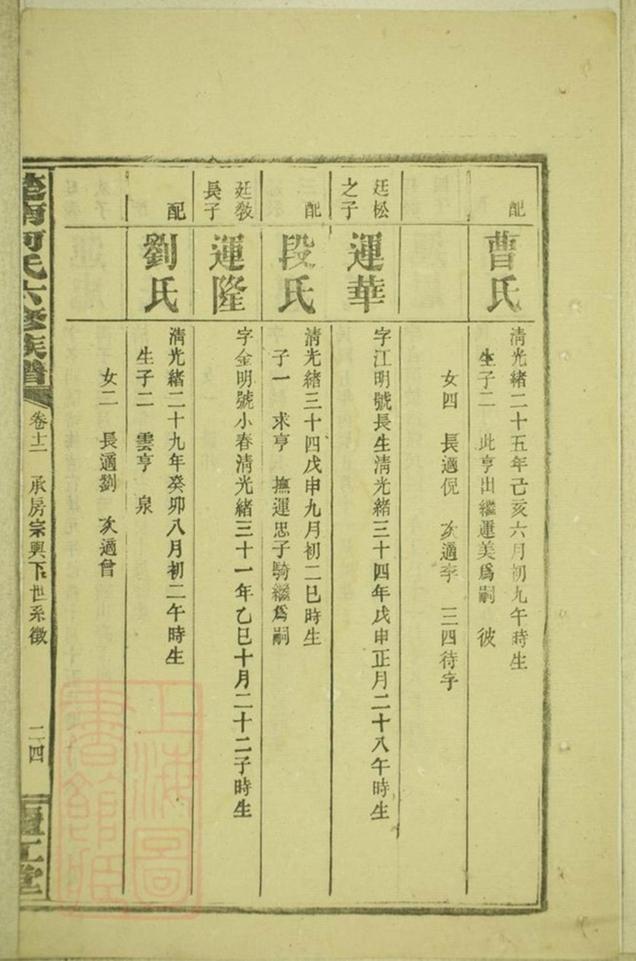 配
曹氏
清光緒二十五年己亥六月初九午時生
生子二　此亨出繼運美爲嗣　彼
女四　長適倪　次適李　三四待字
廷松之子
運華
字江明號長生清光緒三十四年戊申正月二十八午時生
配
段氏
清光緒三十四戊申九月初二巳時生
子一　求亨　撫運忠子騎繼爲嗣
廷敎長子
運隆
字金明號小春清光緒三十一年乙巳十月二十二子時生
配
劉氏
清光緒二十九年癸卯八月初二午時生
生子二　雲亨　泉
女二　長適劉　次適曾
南何氏六修族譜
卷士二　承房宗興下世系徵
二四
堂
上海圖書館藏